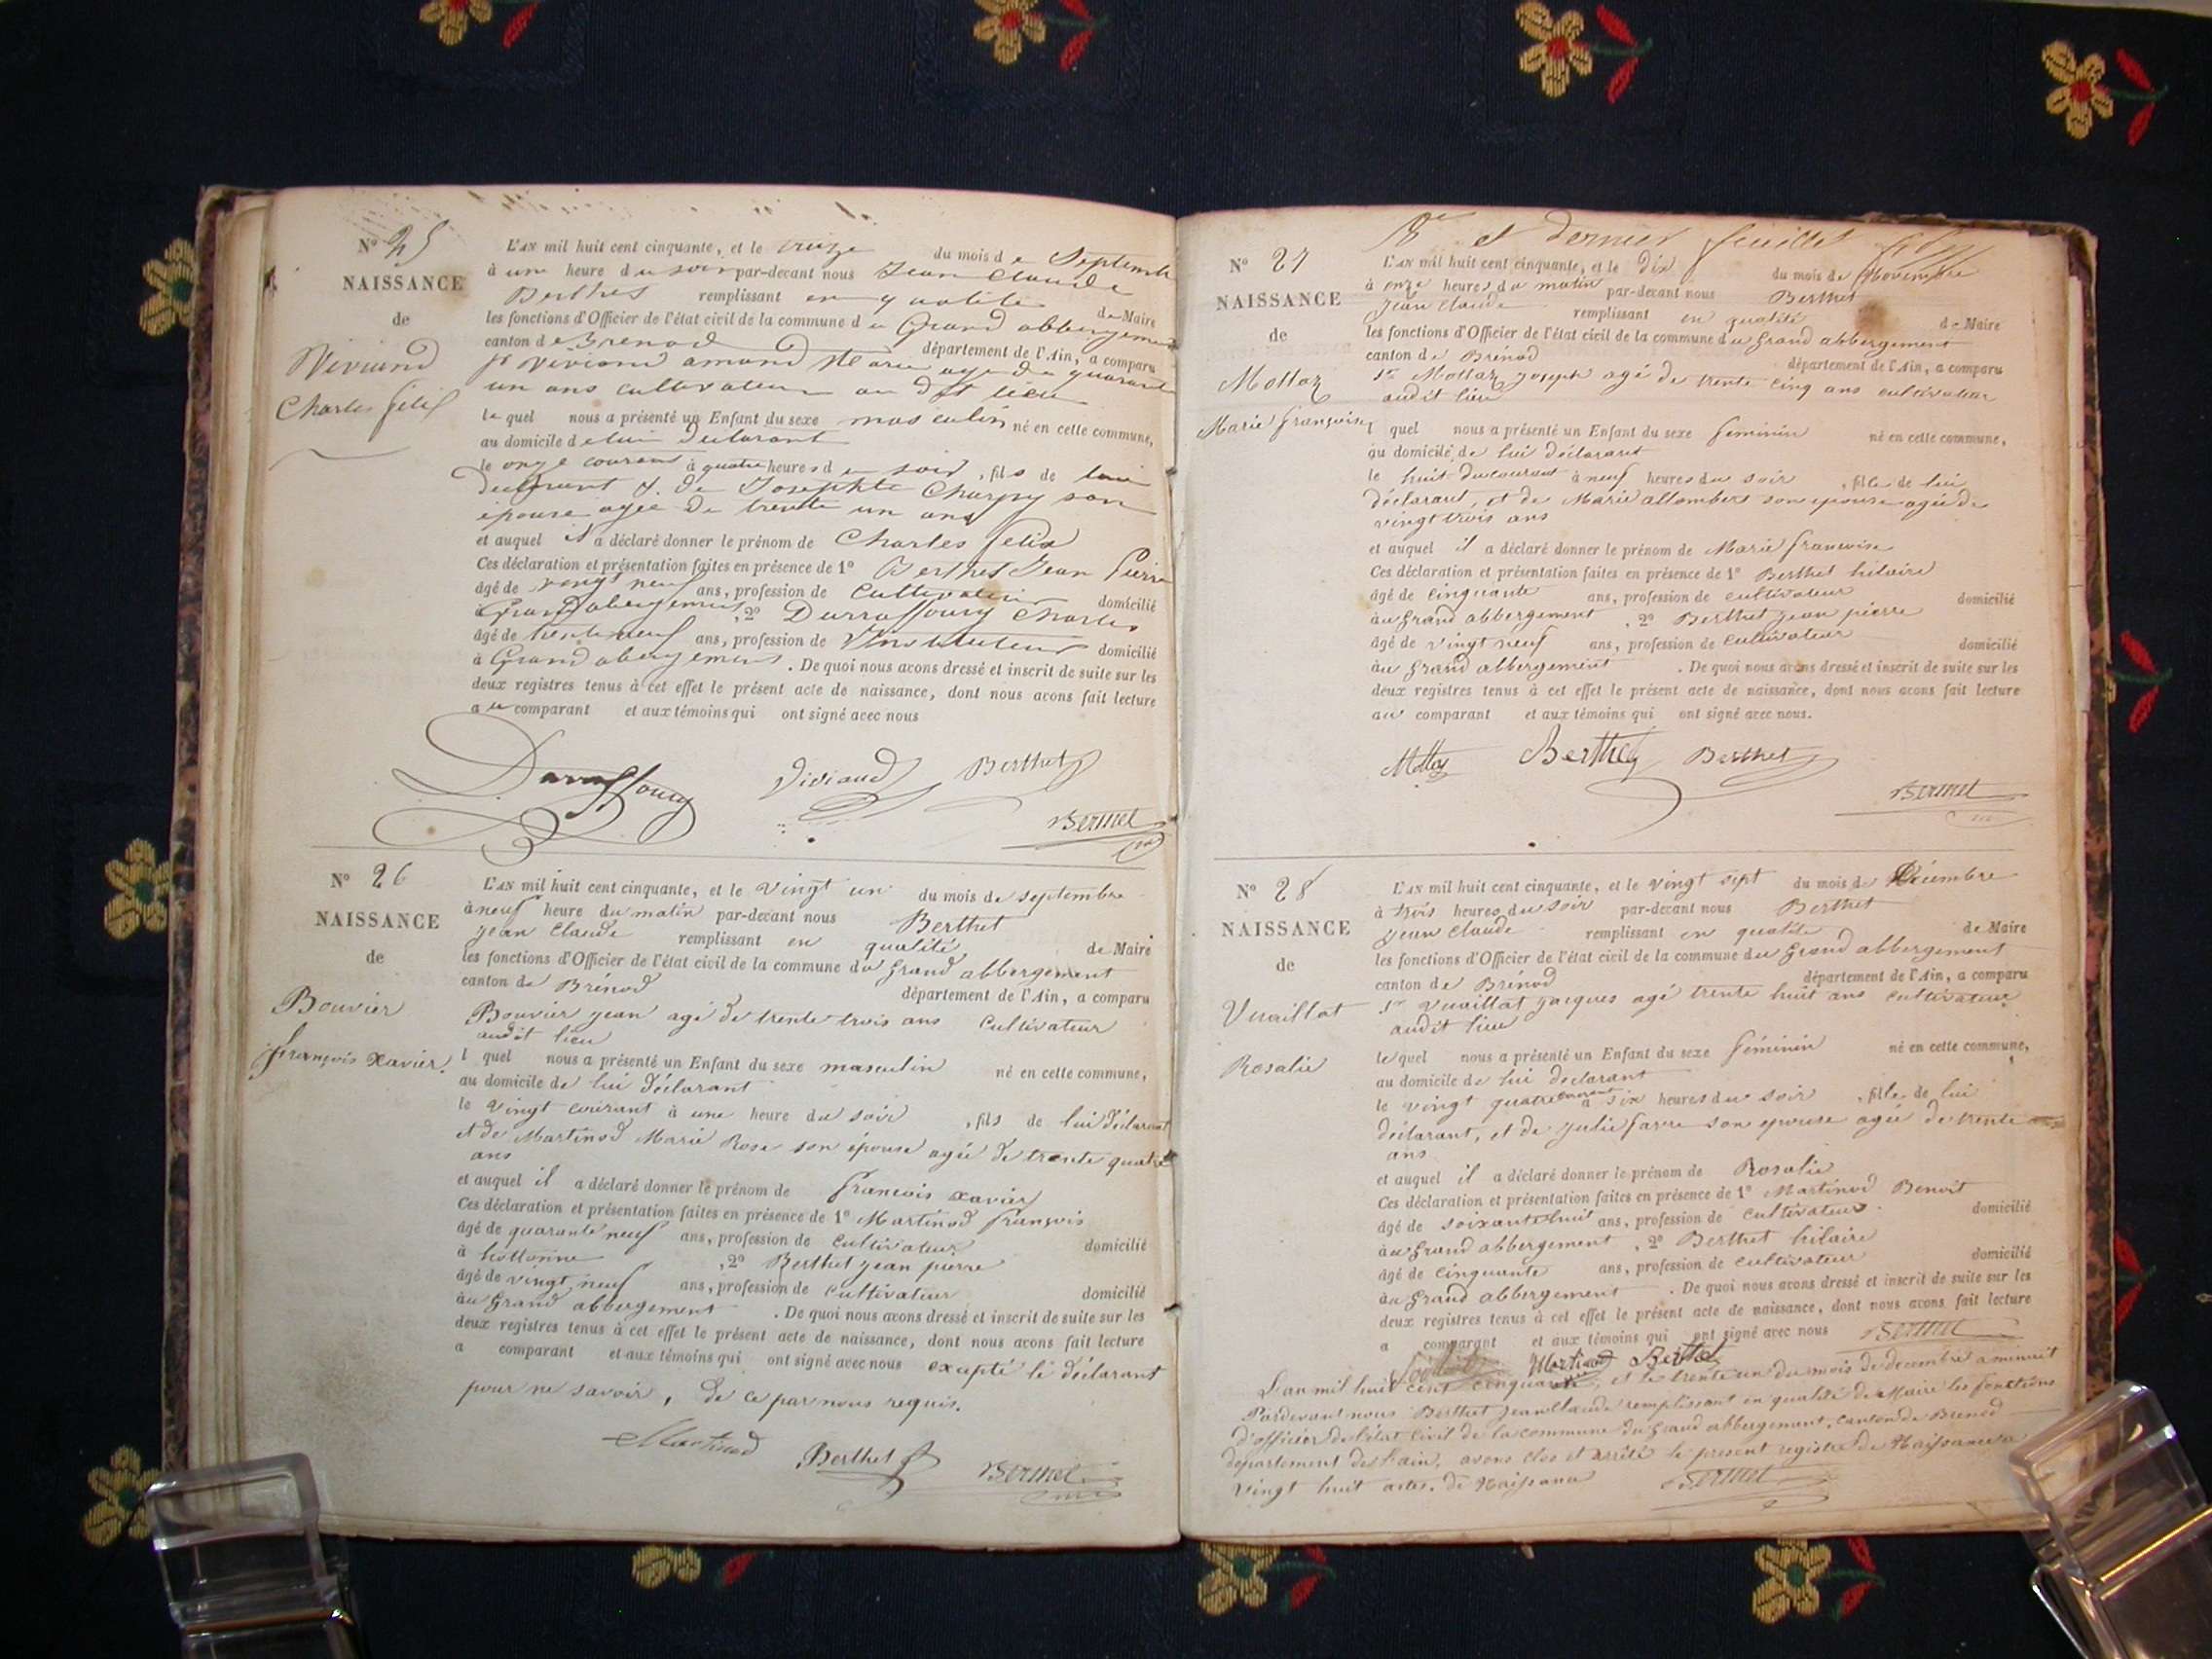 N° 25
NAISSANCE
de
Viviand
Charles felix
L'AN mil huit cent cinquante, et le treize du mois de Septembre
à une heure du soir par-devant nous Jean Claude
Berthet remplissant en qualité de Maire
les fonctions d'Officier de l'état civil de la commune du Grand abbergement
canton de Brenod département de l'Ain, a comparu
Sr Viviand amand Marie age de quarante
un ans cultivateur au dit lieu
le quel nous a présenté un Enfant du sexe masculin né en cette commune,
au domicile de lui declarant
le onze courant à quatre heures du soir, fils de lui
declarant & de Josephte Charpy son
épouse agée de trente un ans
et auquel il a déclaré donner le prénom de Charles felix
Ces déclaration et présentation faites en présence de 1° Berthet Jean Pierre
âgé de vingt neuf ans, profession de Cultivateur domicilié
à Grand abergement, 2° Darraffourg Charles
âgé de trente neuf ans, profession de Instituteur domicilié
à Grand abergement. De quoi nous avons dressé et inscrit de suite sur les
deux registres tenus à cet effet le présent acte de naissance, dont nous avons fait lecture
au comparant et aux témoins qui ont signé avec nous
Darraffourg Viviand Berthet
Berthet
N° 26
NAISSANCE
de
Bouvier
françois Xavier.
L'AN mil huit cent cinquante, et le vingt un du mois de septembre
à neuf heure du matin par-devant nous Berthet
jean Claude remplissant en qualité de Maire
les fonctions d'Officier de l'état civil de la commune du Grand abbergement
canton de Brénod département de l'Ain, a comparu
Bouvier jean agé de trente trois ans Cultivateur
audit lieu
l quel nous a présenté un Enfant du sexe masculin né en cette commune,
au domicile de lui déclarant
le vingt courant à une heure du soir, fils de lui déclarant
et de Martinod Marie Rose son épouse agée de trente quatre
ans
et auquel il a déclaré donner le prénom de francois xavier
Ces déclaration et présentation faites en présence de 1° Martinod françois
âgé de quarante neuf ans, profession de Cultivateur domicilié
à hottonne, 2° Berthet jean pierre
âgé de vingt neuf ans, profession de cultivateur domicilié
au Grand abbergement. De quoi nous avons dressé et inscrit de suite sur les
deux registres tenus à cet effet le présent acte de naissance, dont nous avons fait lecture
a comparant et aux témoins qui ont signé avec nous excepté le déclarant
pour ne savoir, de ce par nous requis.
Martinod Berthet Berthet
et dernier feuillet
N° 27
NAISSANCE
de
Mottaz
Marie françoise
L'AN mil huit cent cinquante, et le dix du mois de Novembre
à onze heures du matin par-devant nous Berthet
jean claude remplissant en qualité de Maire
les fonctions d'Officier de l'état civil de la commune du Grand abbergement
canton de Brénod département de l'Ain, a comparu
Sr Mottaz joseph agé de trente cinq ans cultivateur
audit lieu
l quel nous a présenté un Enfant du sexe féminin né en cette commune,
au domicile de lui déclarant
le huit du courant à neuf heures du soir, fille de lui
déclarant, et de Marie allombert son epouse agée de
vingt trois ans
et auquel il a déclaré donner le prénom de Marie francoise
Ces déclaration et présentation faites en présence de 1° Berthet hilaire
âgé de cinquante ans, profession de cultivateur domicilié
au Grand abbergement, 2° Berthet jean pierre
âgé de vingt neuf ans, profession de Cultivateur domicilié
au Grand abbergement. De quoi nous avons dressé et inscrit de suite sur les
deux registres tenus à cet effet le présent acte de naissance, dont nous avons fait lecture
au comparant et aux témoins qui ont signé avec nous.
Mottaz Berthet Berthet
Berthet
N° 28
NAISSANCE
de
Vuaillat
Rosalie
L'AN mil huit cent cinquante, et le vingt sept du mois de Décembre
à trois heures du soir par-devant nous Berthet
jean claude remplissant en qualité de Maire
les fonctions d'Officier de l'état civil de la commune du Grand abbergement
canton de Brénod département de l'Ain, a comparu
Sr Vuaillat jacques agé trente huit ans cultivateur
audit lieu
le quel nous a présenté un Enfant du sexe féminin né en cette commune,
au domicile de lui declarant
le vingt quatre courant à six heures du soir, fille de lui
déclarant, et de julie favre son epouse agée de trente
ans
et auquel il a déclaré donner le prénom de Rosalie
Ces déclaration et présentation faites en présence de 1° Martinod Benoit
âgé de soixante huit ans, profession de cultivateur domicilié
au Grand abbergement, 2° Berthet hilaire
âgé de cinquante ans, profession de cultivateur domicilié
au Grand abbergement. De quoi nous avons dressé et inscrit de suite sur les
deux registres tenus à cet effet le présent acte de naissance, dont nous avons fait lecture
a comparant et aux témoins qui ont signé avec nous Berthet
Martinod Berthet
L'an mil huit cent cinquante, et le trente un du mois de decembre a minuit
Pardevant nous Berthet jean Claude remplissant en qualité de Maire les fonctions
d'officier de l'état Civil de la commune du Grand abbergement, canton de Brenod
département de l'ain, avons clos et arrêté le present registre de Naissance a
vingt huit actes de Naissance Berthet